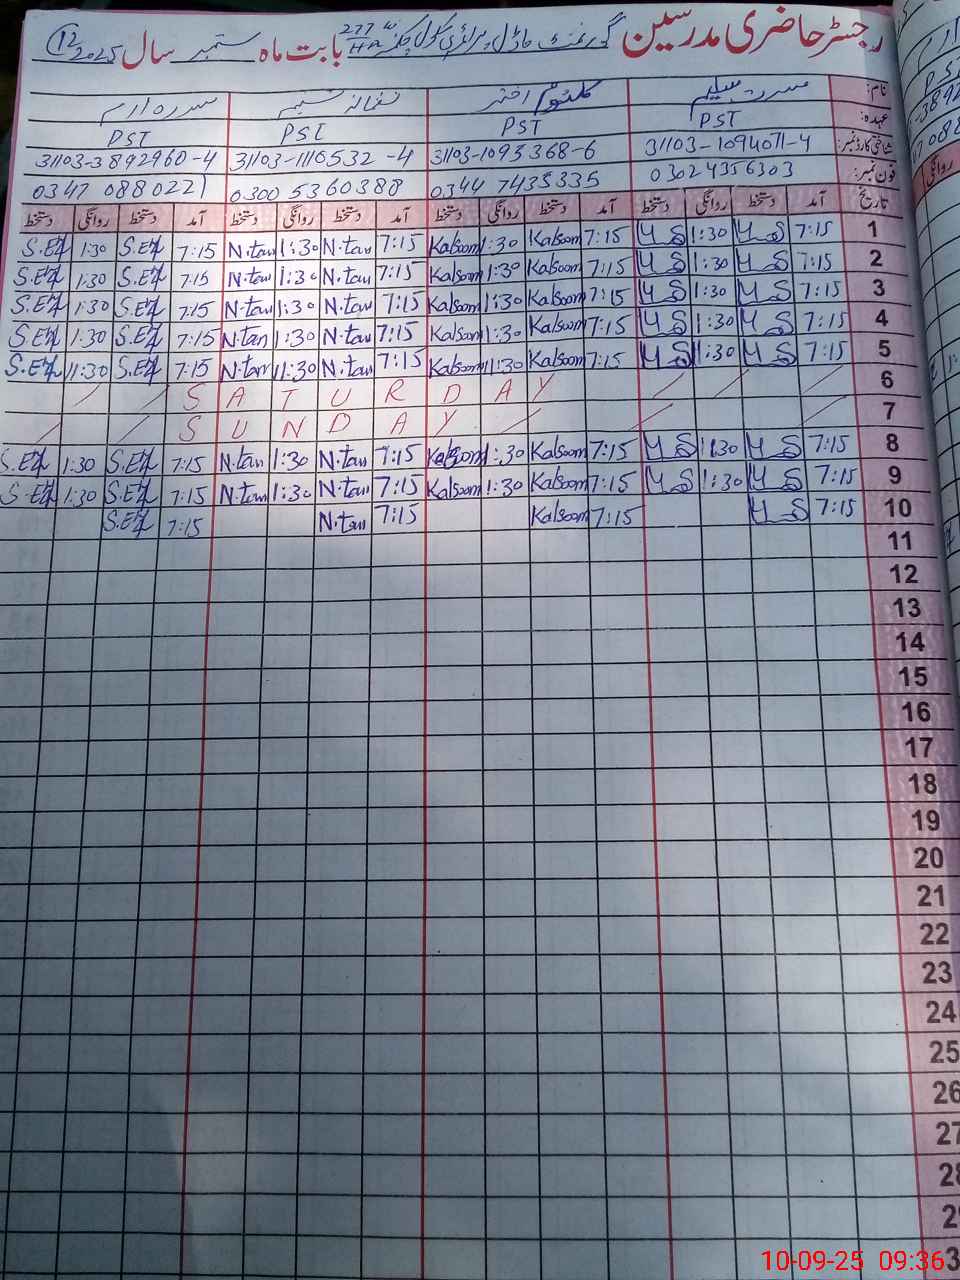 رجسٹر حاضری مدرسین گورنمنٹ ماڈل پرائمری سکول چکنمبر 277 HR بابت ماہ ستمبر سال 2025 12
نام: مسرت سلیم کلثوم اختر نغمانہ تسنیم سدرہ ارم
عہدہ: PST PST PST PST
شناختی کارڈ نمبر: 31103-1094071-4 31103-1093368-6 31103-1110532-4 31103-3892960-4
فون نمبر: 03024356303 0344 7435335 0300 5360388 0347 0880221
تاریخ آمد دستخط روانگی دستخط آمد دستخط روانگی دستخط آمد دستخط روانگی دستخط آمد دستخط روانگی دستخط
1 7:15 1:30 7:15 Kalsoom 1:30 Kalsoom 7:15 N.tan 1:30 N.tan 7:15 1:30
2 7:15 1:30 7:15 Kalsoom 1:30 Kalsoom 7:15 N.tan 1:30 N.tan 7:15 1:30
3 7:15 1:30 7:15 Kalsoom 1:30 Kalsoom 7:15 N.tan 1:30 N.tan 7:15 1:30
4 7:15 1:30 7:15 Kalsoom 1:30 Kalsoom 7:15 N.tan 1:30 N.tan 7:15 1:30
5 7:15 1:30 7:15 Kalsoom 1:30 Kalsoom 7:15 N.tan 1:30 N.tan 7:15 1:30
6 SATURDAY
7 SUNDAY
8 7:15 1:30 7:15 Kalsoom 1:30 Kalsoom 7:15 N.tan 1:30 N.tan 7:15 1:30
9 7:15 1:30 7:15 Kalsoom 1:30 Kalsoom 7:15 N.tan 1:30 N.tan 7:15 1:30
10 7:15 7:15 Kalsoom 7:15 N.tan 7:15
11
12
13
14
15
16
17
18
19
20
21
22
23
24
25
26
27
28
29
3
10-09-25 09:36